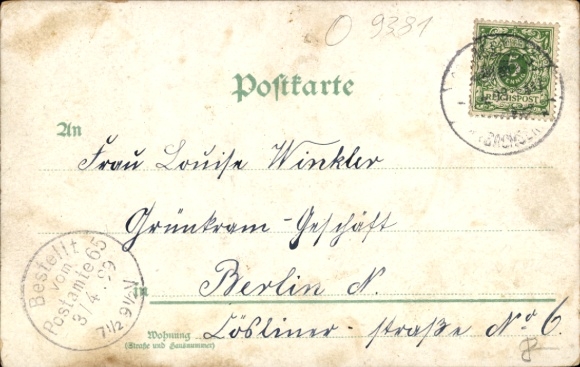 O 9381
Postkarte
5
REICHSPOST
An
Frau Louise Winkler
Grünkram-Geschäft
in
Berlin N.
Wohnung
(Straße und Hausnummer)
Cösliner-straße No 6.
Bestellt
vom
Postamte 65
3/4.99
7½-9½N